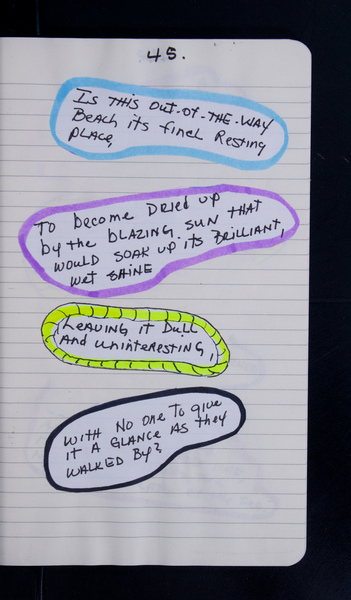 45.
Is THIS OUT-OF-THE-WAY
BEACH its finel Resting
PLACE,
TO become DRIED up
by the BLAZING SUN THAT
WOULD SOAK up its BRILLIANT,
WET SHINE
LEAVING IT DULL
AND UNINTERESTING,
WITH NO ONE TO give
IT A GLANCE AS they
WALKED By?